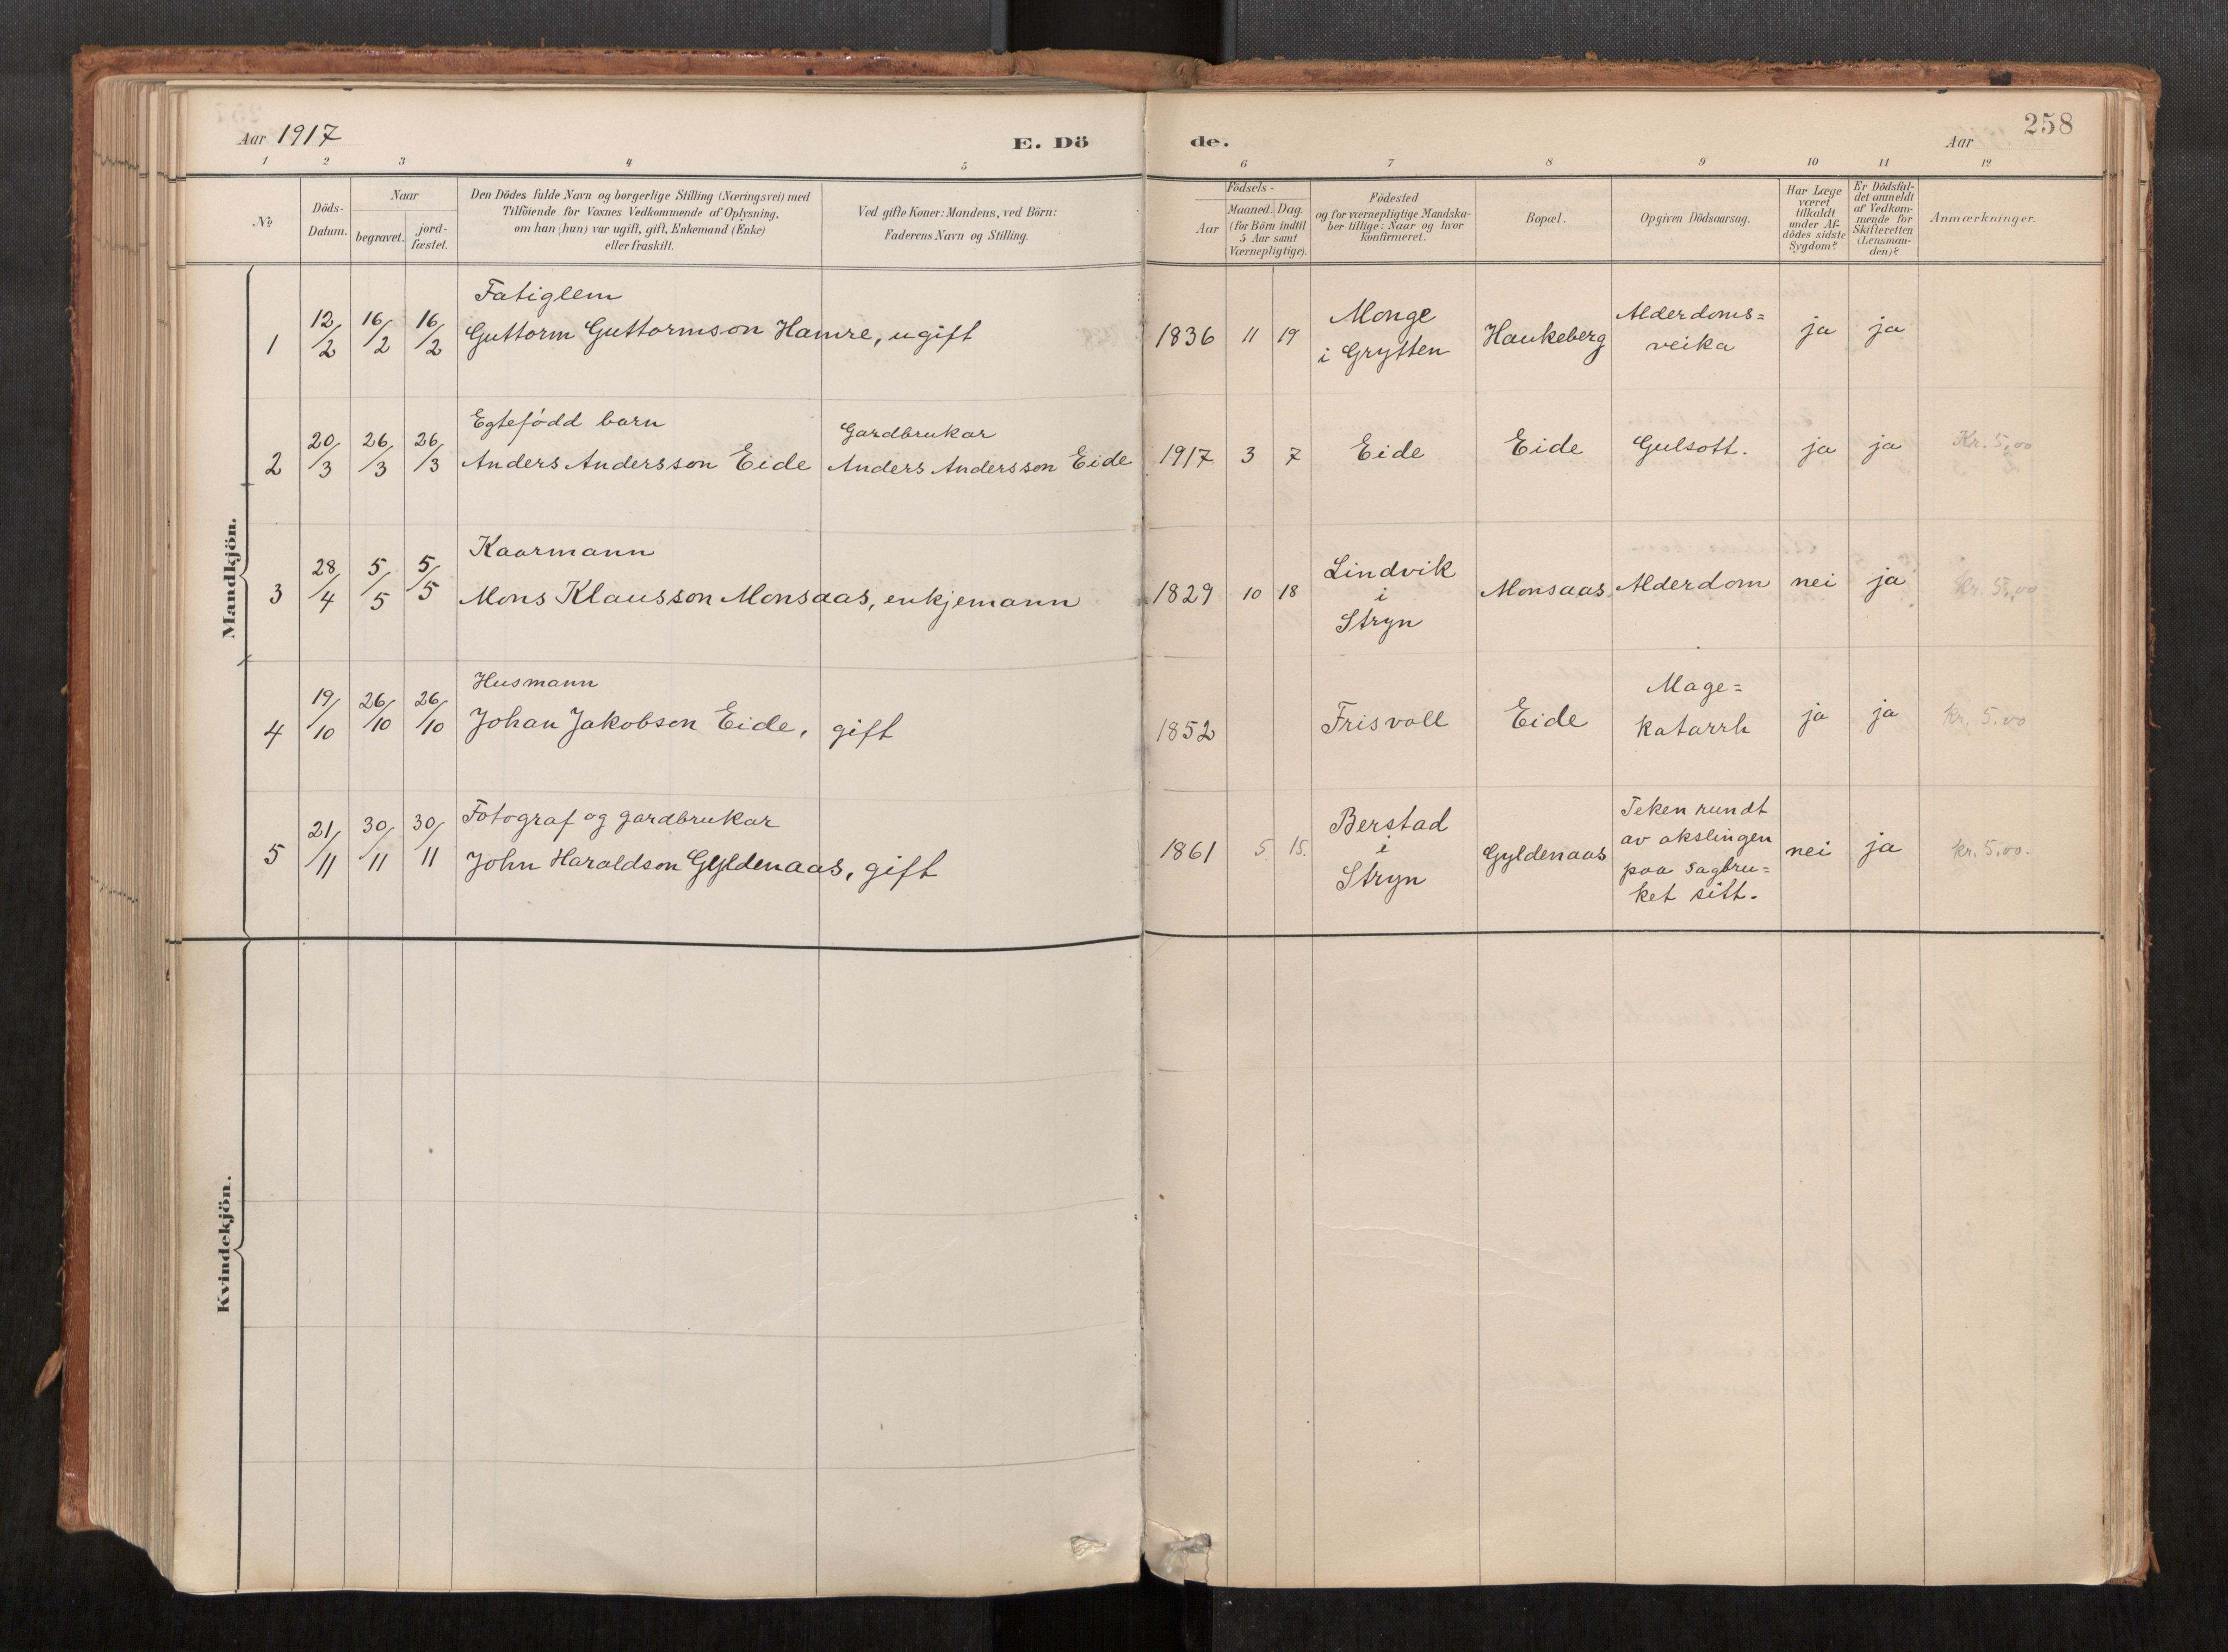 Aar 1917
E. Dö
de.
Aar
258
1 2 3 4 5 6 7 8 9 10 11 12
No
Döds-
Datum.
Naar
begravet.
jord-
fæstet.
Den Dödes fulde Navn og borgerlige Stilling (Næringsvei) med
Tilföiende for Voxnes Vedkommende af Oplysning,
om han (hun) var ugift, gift, Enkemand (Enke)
eller fraskilt.
Ved gifte Koner: Mandens, ved Börn:
Faderens Navn og Stilling.
Födsels-
Aar
Maaned. Dag.
(for Börn indtil
5 Aar samt
Værnepligtige).
Födested
og for værnepligtige Mandska-
ber tillige: Naar og hvor
konfirmeret.
Bopæl.
Opgiven Dödsaarsag.
Har Læge
været
tilkaldt
under Af-
dödes sidste
Sygdom?
Er Dödsfal-
det anmeldt
af Vedkom-
mende for
Skifteretten
(Lensman-
den)?
Anmærkninger.
Mandkjön.
Fatiglem
1 12/2 16/2 16/2 Guttorm Guttormson Hamre, ugift 1836 11 19
Monge
i Grytten
Haukeberg
Alderdoms=
veika
ja ja
Egtefødd barn
2 20/3 26/3 26/3 Anders Andersson Eide
Gardbrukar
Anders Andersson Eide
1917 3 7 Eide Eide Gulsott. ja ja Kr. 5,00
Kaarmann
3 28/4 5/5 5/5 Mons Klausson Monsaas, enkjemann 1829 10 18
Lindvik
i
Stryn
Monsaas Alderdom nei ja Kr. 5,00
Husmann
4 19/10 26/10 26/10 Johan Jakobson Eide, gift 1852 Frisvoll Eide
Mage=
katarrh
ja ja Kr. 5.00
Fotograf og gardbrukar
5 21/11 30/11 30/11 John Haraldson Gyldenaas, gift 1861 5. 15.
Berstad
i
Stryn
Gyldenaas
Teken rundt
av akslingen
paa sagbru=
ket sitt.
nei ja kr. 5.00.
Kvindekjön.